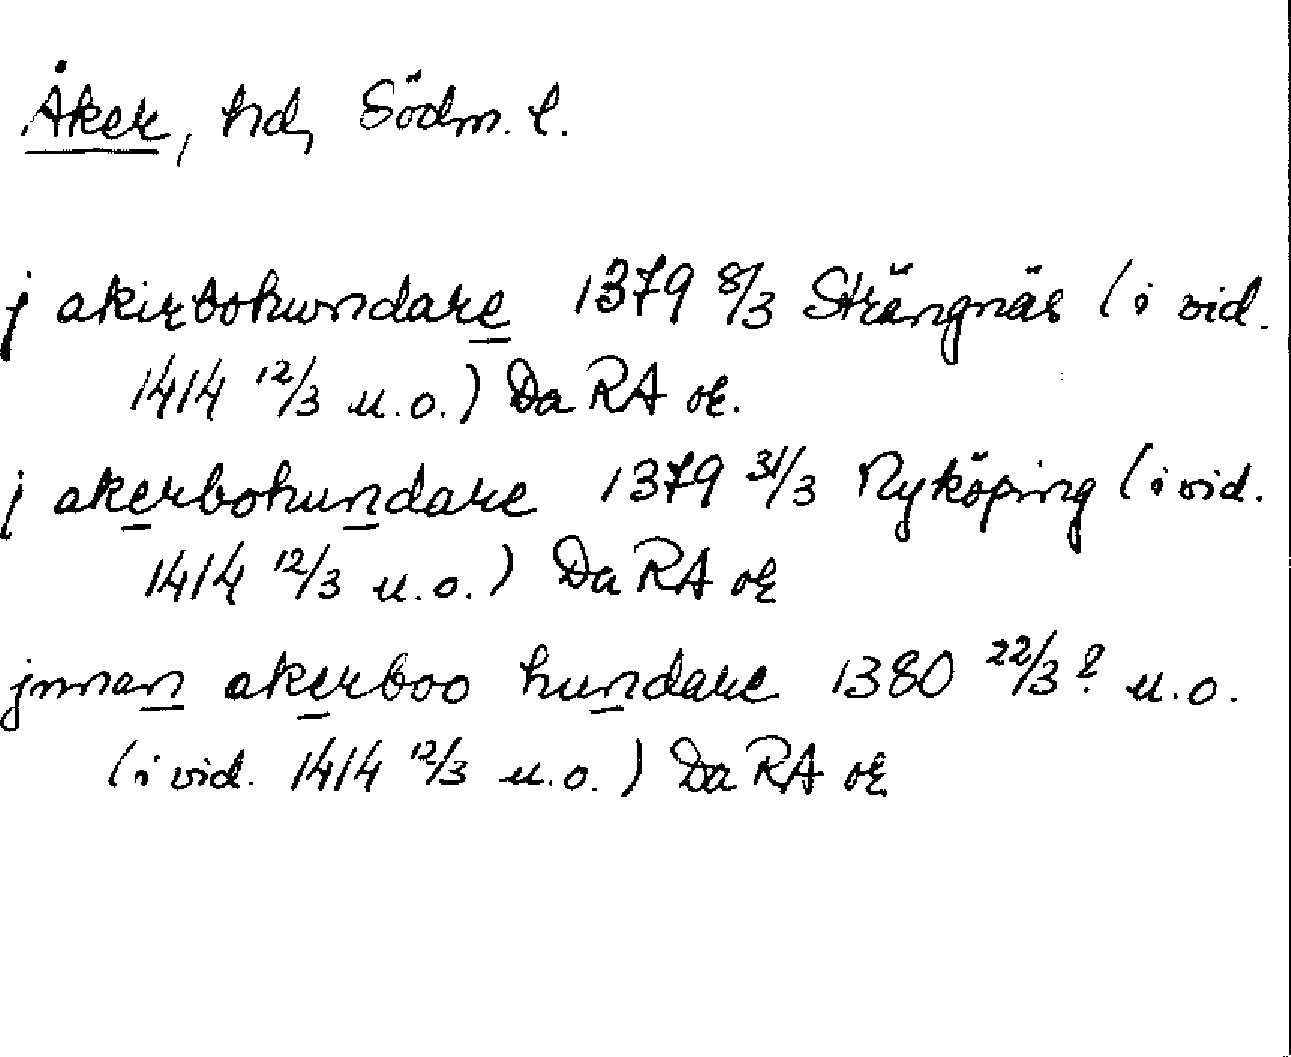 Åker, hd, Södm. l.
j akirbohundare 1379 8/3 Strängnäs (i vid.
1414 12/3 u.o.) Da RA or.
j akerbohundare 1379 31/3 Nyköping (i vid.
1414 12/3 u.o.) Da RA or
jnnan akerboo hundare 1380 22/3? u.o.
(i vid. 1414 12/3 u.o.) Da RA or